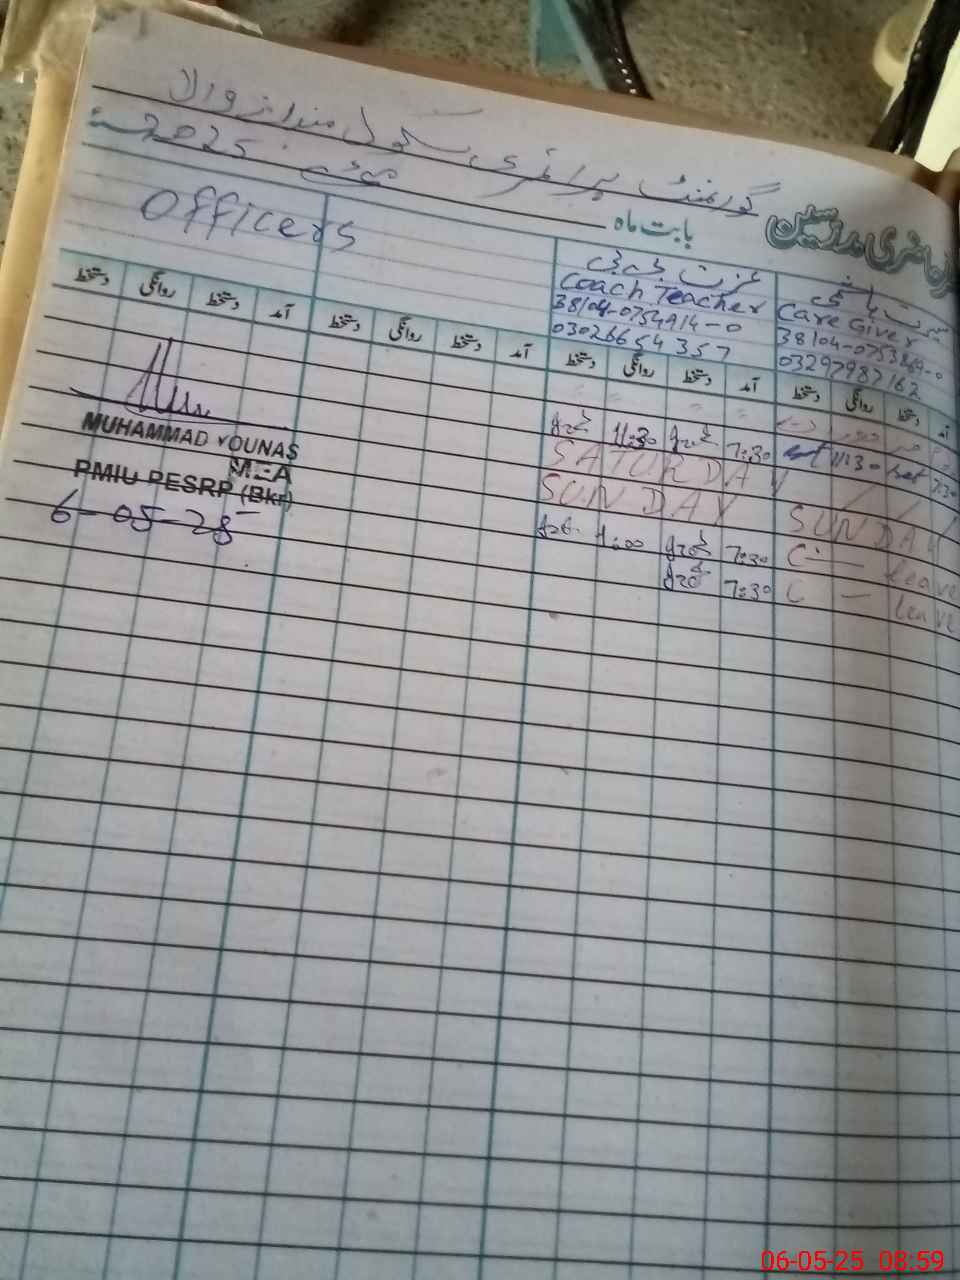 گورنمنٹ پرائمری سکول
بابت ماہ مئی 2025
حاضری مدرسین
Officers
عزت بی بی
Coach Teacher
38104-0754914-0
03026654357
Care Giver
38104-0753869-0
03297987162
آمد دستخط روانگی دستخط آمد دستخط روانگی دستخط آمد دستخط روانگی دستخط آمد دستخط روانگی دستخط
7:30 11:30 7:30 11:30
SATURDAY
SUNDAY SUNDAY
C — leave 7:30 1:00
C — leave 7:30
MUHAMMAD YOUNAS
MEA
PMIU PESRP (Bkr)
6-05-25
06-05-25 08:59